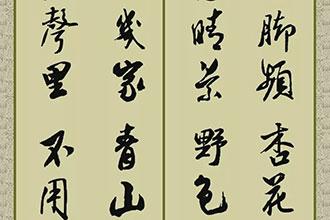 脚頻杏花
晴野色
幾家青山
聲里不用